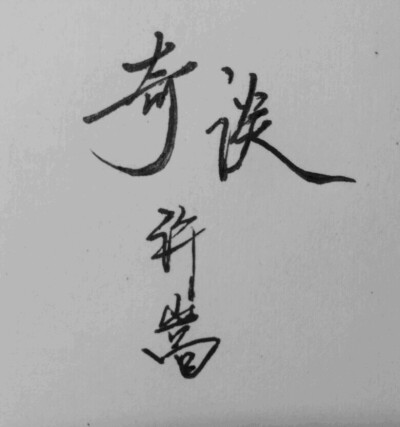 奇谈
许嵩